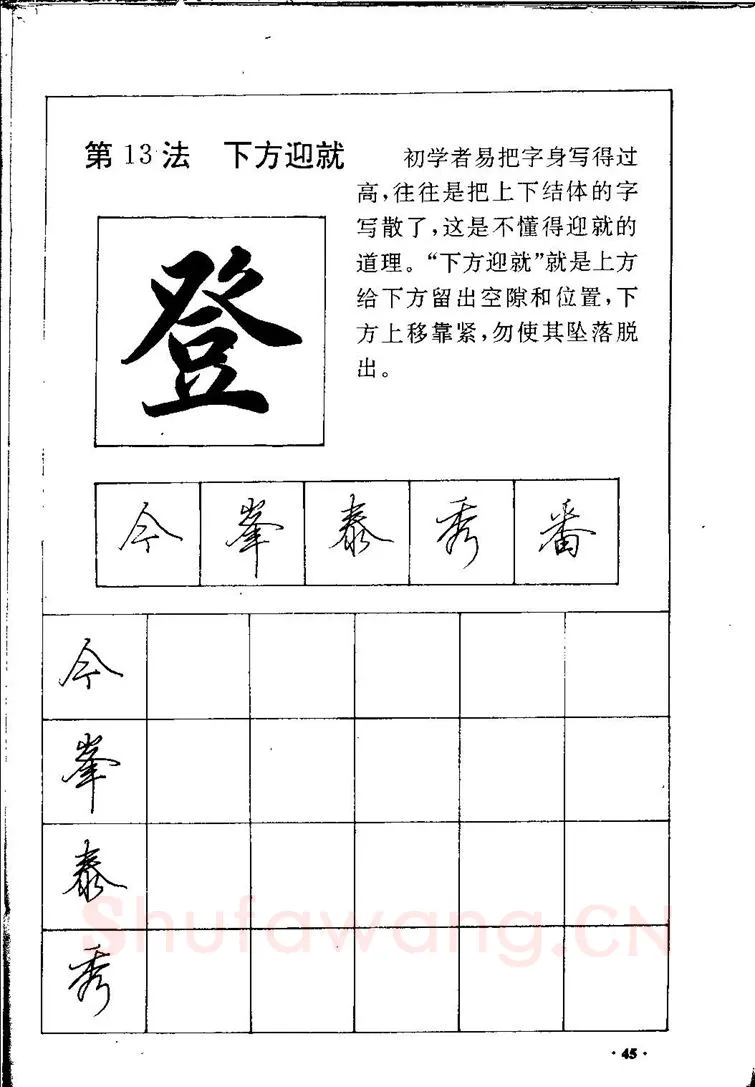 第13法 下方迎就
初学者易把字身写得过
高,往往是把上下结体的字
写散了,这是不懂得迎就的
道理。“下方迎就”就是上方
给下方留出空隙和位置,下
方上移靠紧,勿使其坠落脱
出。
登
今 峯 泰 秀 番
今
峯
泰
秀
Shufawang.CN
·45·